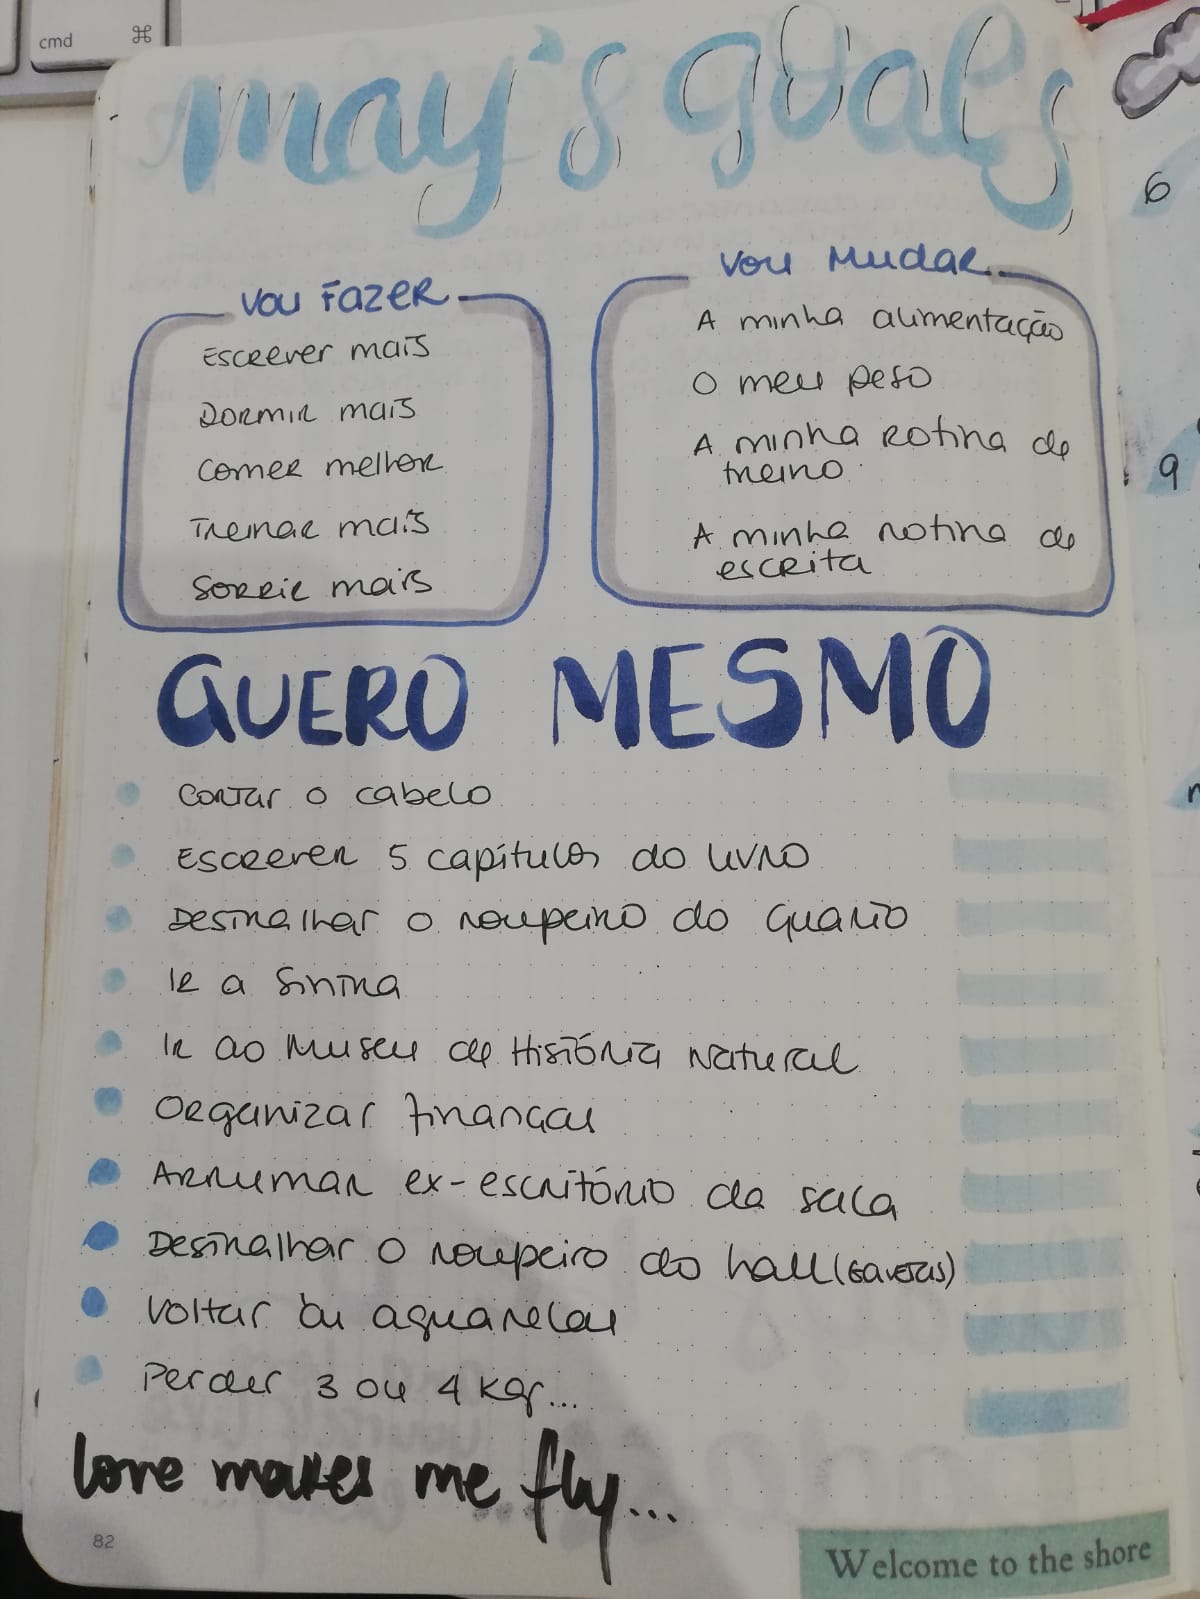 cmd ⌘
may's goals
6
Vou Fazer
Escrever mais
Dormir mais
Comer melhor
Treinar mais
Sorrir mais
Vou Mudar
A minha alimentação
O meu peso
A minha rotina de
treino
A minha rotina de
escrita
9
QUERO MESMO
Cortar o cabelo
Escrever 5 capítulos do livro
Destralhar o roupeiro do quarto
Ir a Sintra
Ir ao Museu de História Natural
Organizar finanças
Arrumar ex-escritório da sala
Destralhar o roupeiro do hall (gavetas)
Voltar às aguarelas
Perder 3 ou 4 kg...
love makes me fly...
82
Welcome to the shore